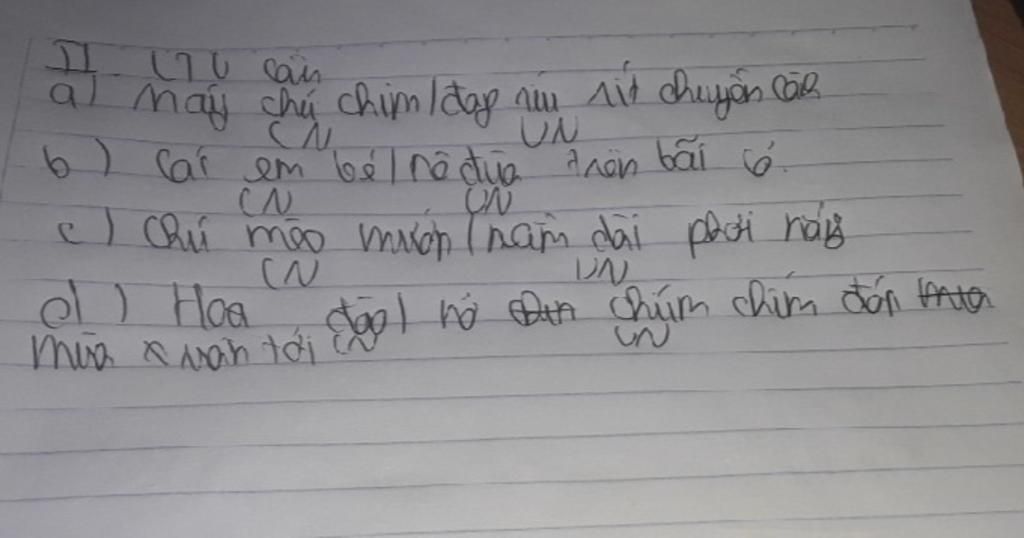 II
a) mấy chú chim / đạp ríu rít chuyền cành
CN VN
b) Các em bé / nô đùa trên bãi cỏ.
CN VN
c) Chú mèo mướp / nằm dài phơi nắng
CN VN
d) Hoa đào / nở chúm chím đón
mùa xuân tới CN VN